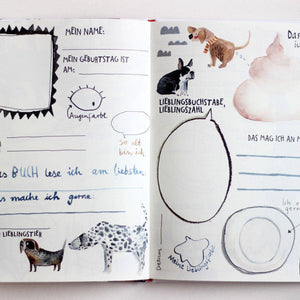 MEIN NAME:
MEIN GEBURTSTAG IST
AM:
Augenfarbe
So alt
bin ich
BUCH lese ich am liebsten
mache ich gerne.
LIEBLINGSTIER
LIEBLINGSBUCHSTABE,
LIEBLINGSZAHL
DAS MAG ICH AN M
Ich
Datum
Meine Lieblings